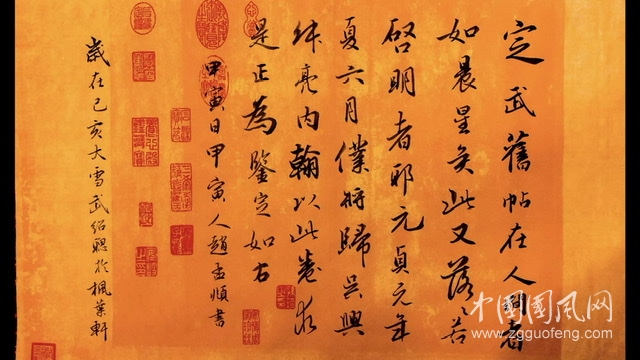 定武舊帖在人間者
如晨星矣此又落若
啓明者耶元貞元年
夏六月僕將歸吳興
亮内翰以此卷求
是正為鑒定如右
甲寅日甲寅人趙孟頫書
歲在己亥大雪武紹聰於楓葉軒
中国国风网
www.zgguofeng.com